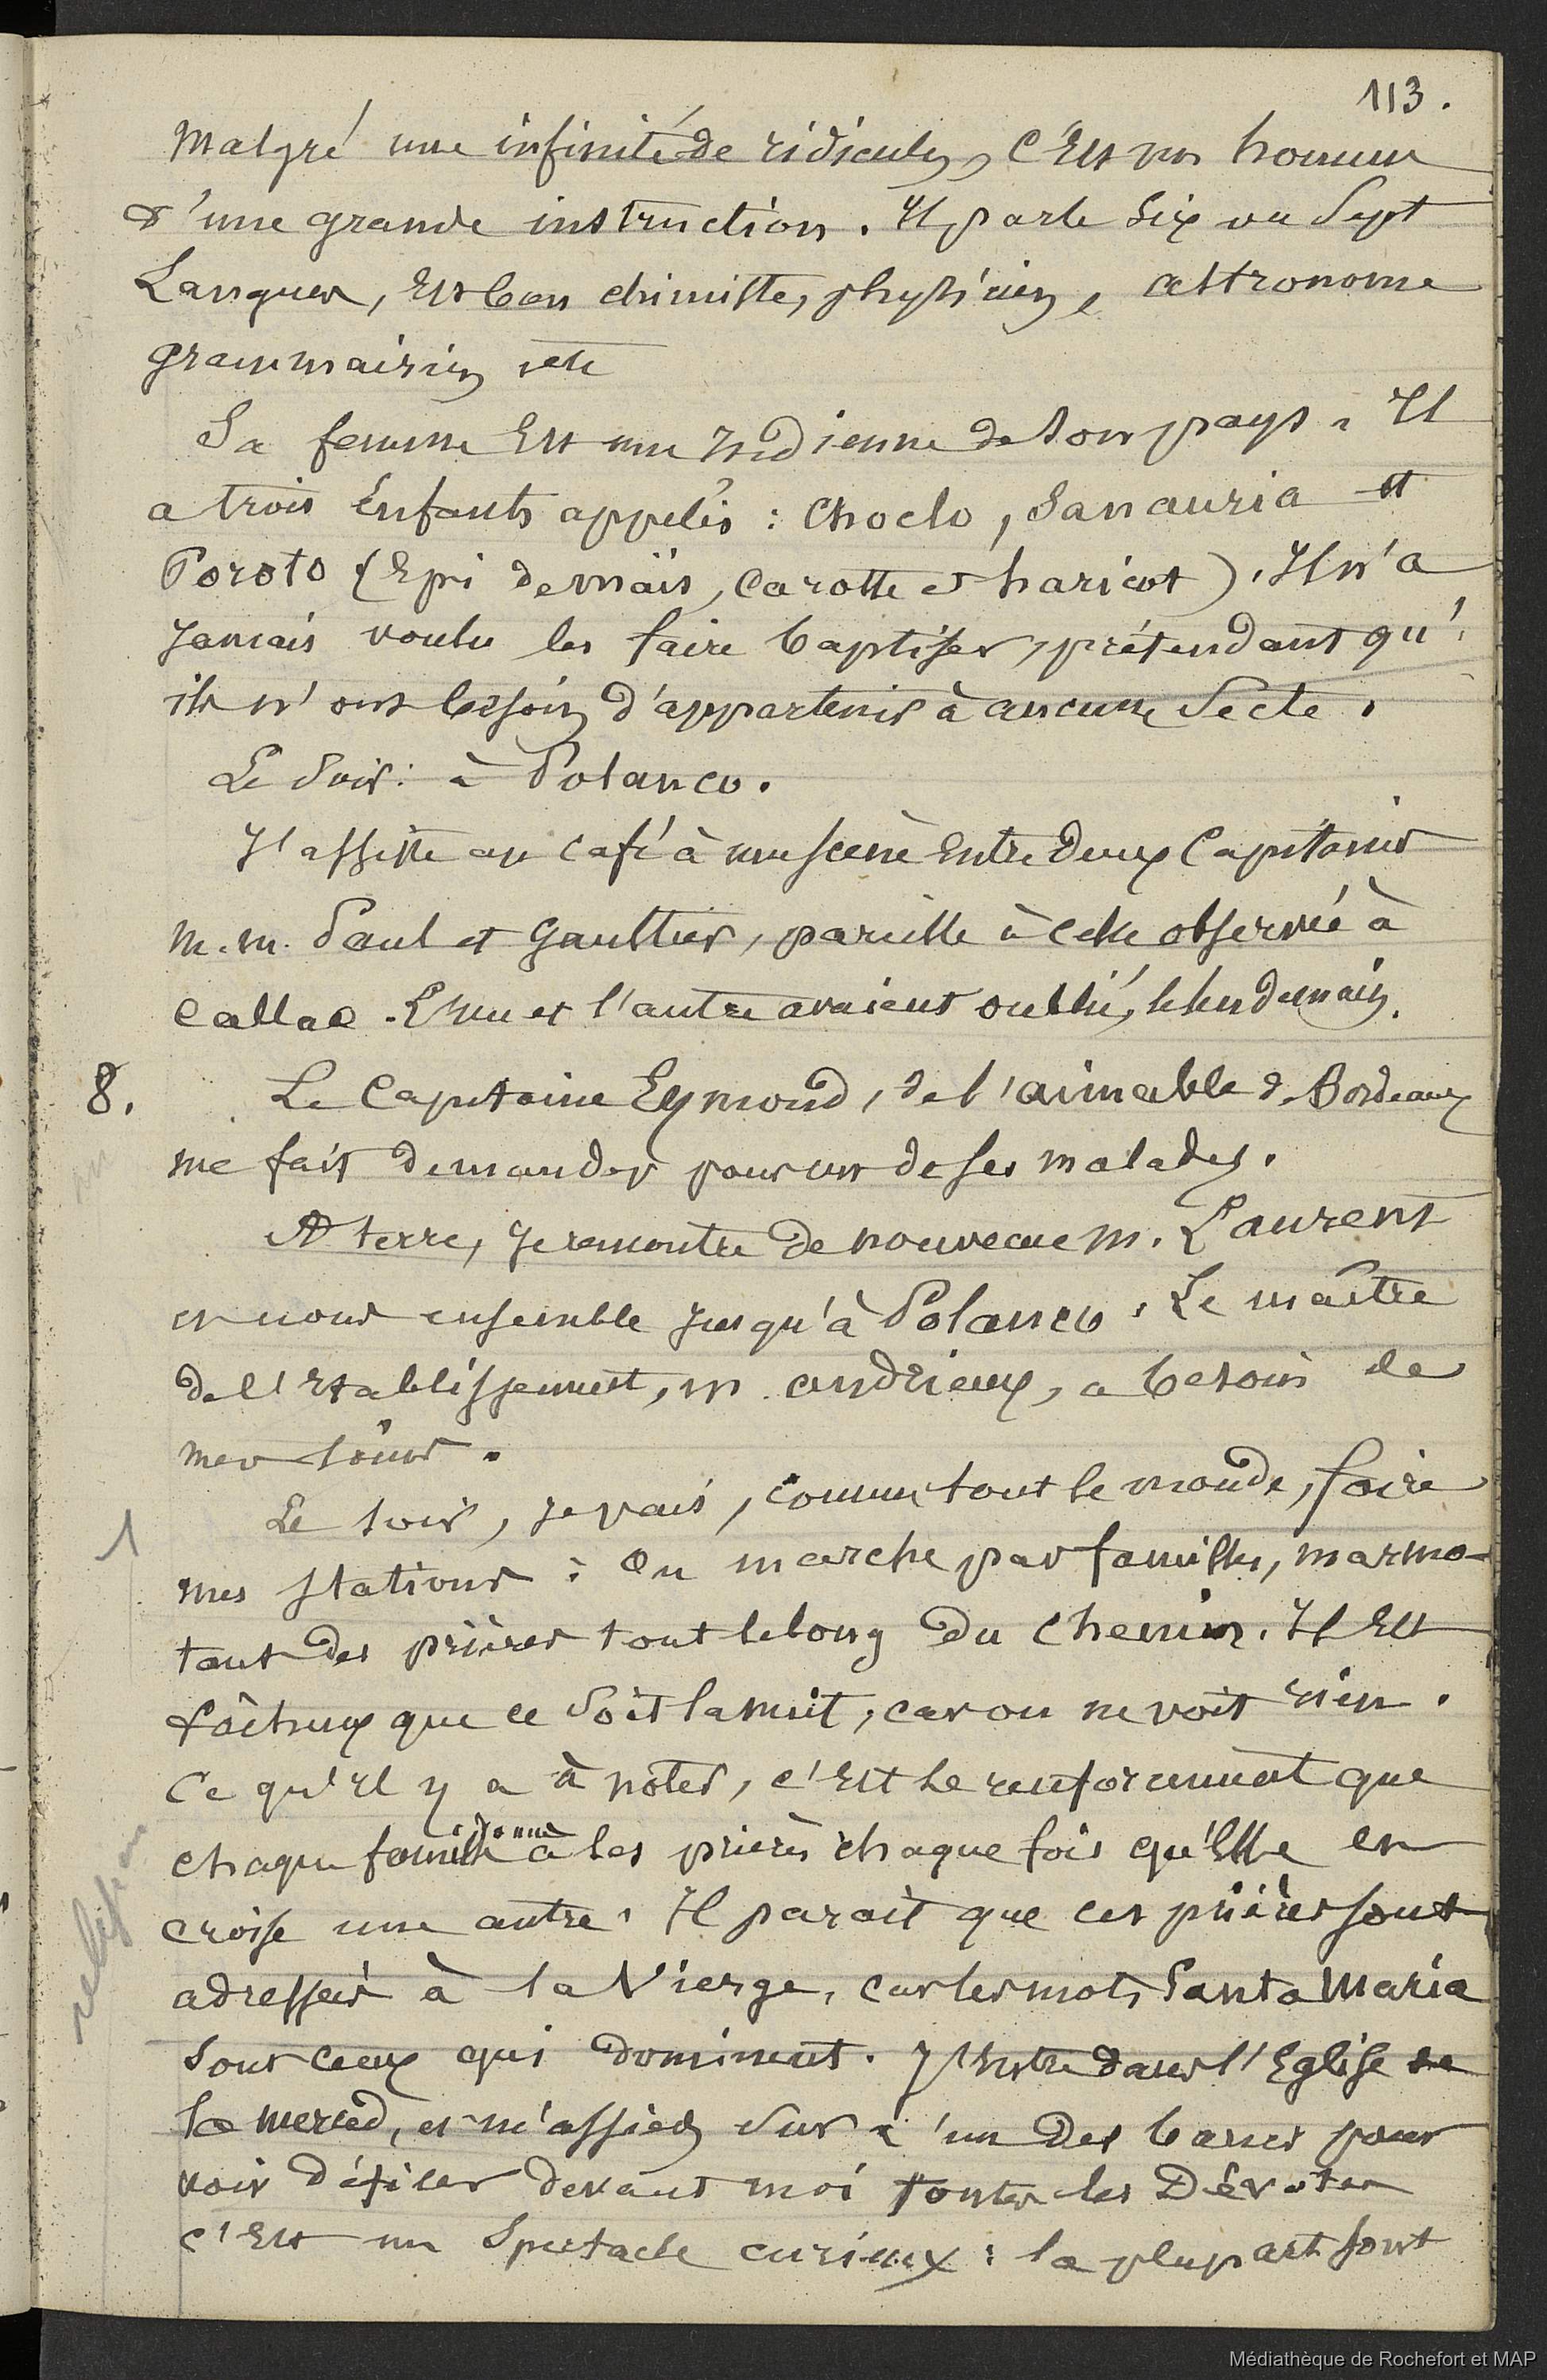 113.
Malgré une infinité de ridicules, c'Est un homme
d'une grande instruction. Il parle Six ou Sept
Langues, Est bon chimiste, physicien, astronome
grammairien etc
Sa femme Est une Indienne de son pays. Il
a trois Enfants appelés : Choclo, Sanauria et
Poroto (Epi de maïs, Carotte et haricot). Il n'a
Jamais voulu les faire baptiser, prétendant qu'
ils n'ont besoin d'appartenir à aucune Secte.
Le Soir : à Polanco.
J'assiste au Café à une scène Entre deux Capitaines
M.M. Paul et Gaultier, pareille à celle observée à
Callao. L'un et l'autre avaient oublié, le lendemain.
8. Le Capitaine Eymond, de l'aimable de Bordeaux
me fait demander pour un de ses malades.
A terre, Je rencontre de nouveau M. Laurent
et nous ensemble Jusqu'à Polanco. Le maître
de l'Etablissement, M. Andrieux, a besoin de
mes soins.
1 Le soir, Je vais, comme tout le monde, faire
mes Stations : On marche par familles, marmo-
tant des prières tout le long du Chemin. Il Est
fâcheux que ce Soit la nuit, car on ne voit rien.
Ce qu'il y a à noter, c'Est le renforcement que
Chaque famille donne à ses prières chaque fois qu'Elle en
croise une autre. Il parait que ces prières sont
adressées à la Vierge, car les mots Santa Maria
religion
Sont Ceux qui dominent. J'Entre dans l'Eglise de
la Merced, et m'assieds Sur l'un des bancs pour
voir défiler devant moi toutes les Dévotes
c'Est un Spectacle curieux : la plupart sont
Médiathèque de Rochefort et MAP